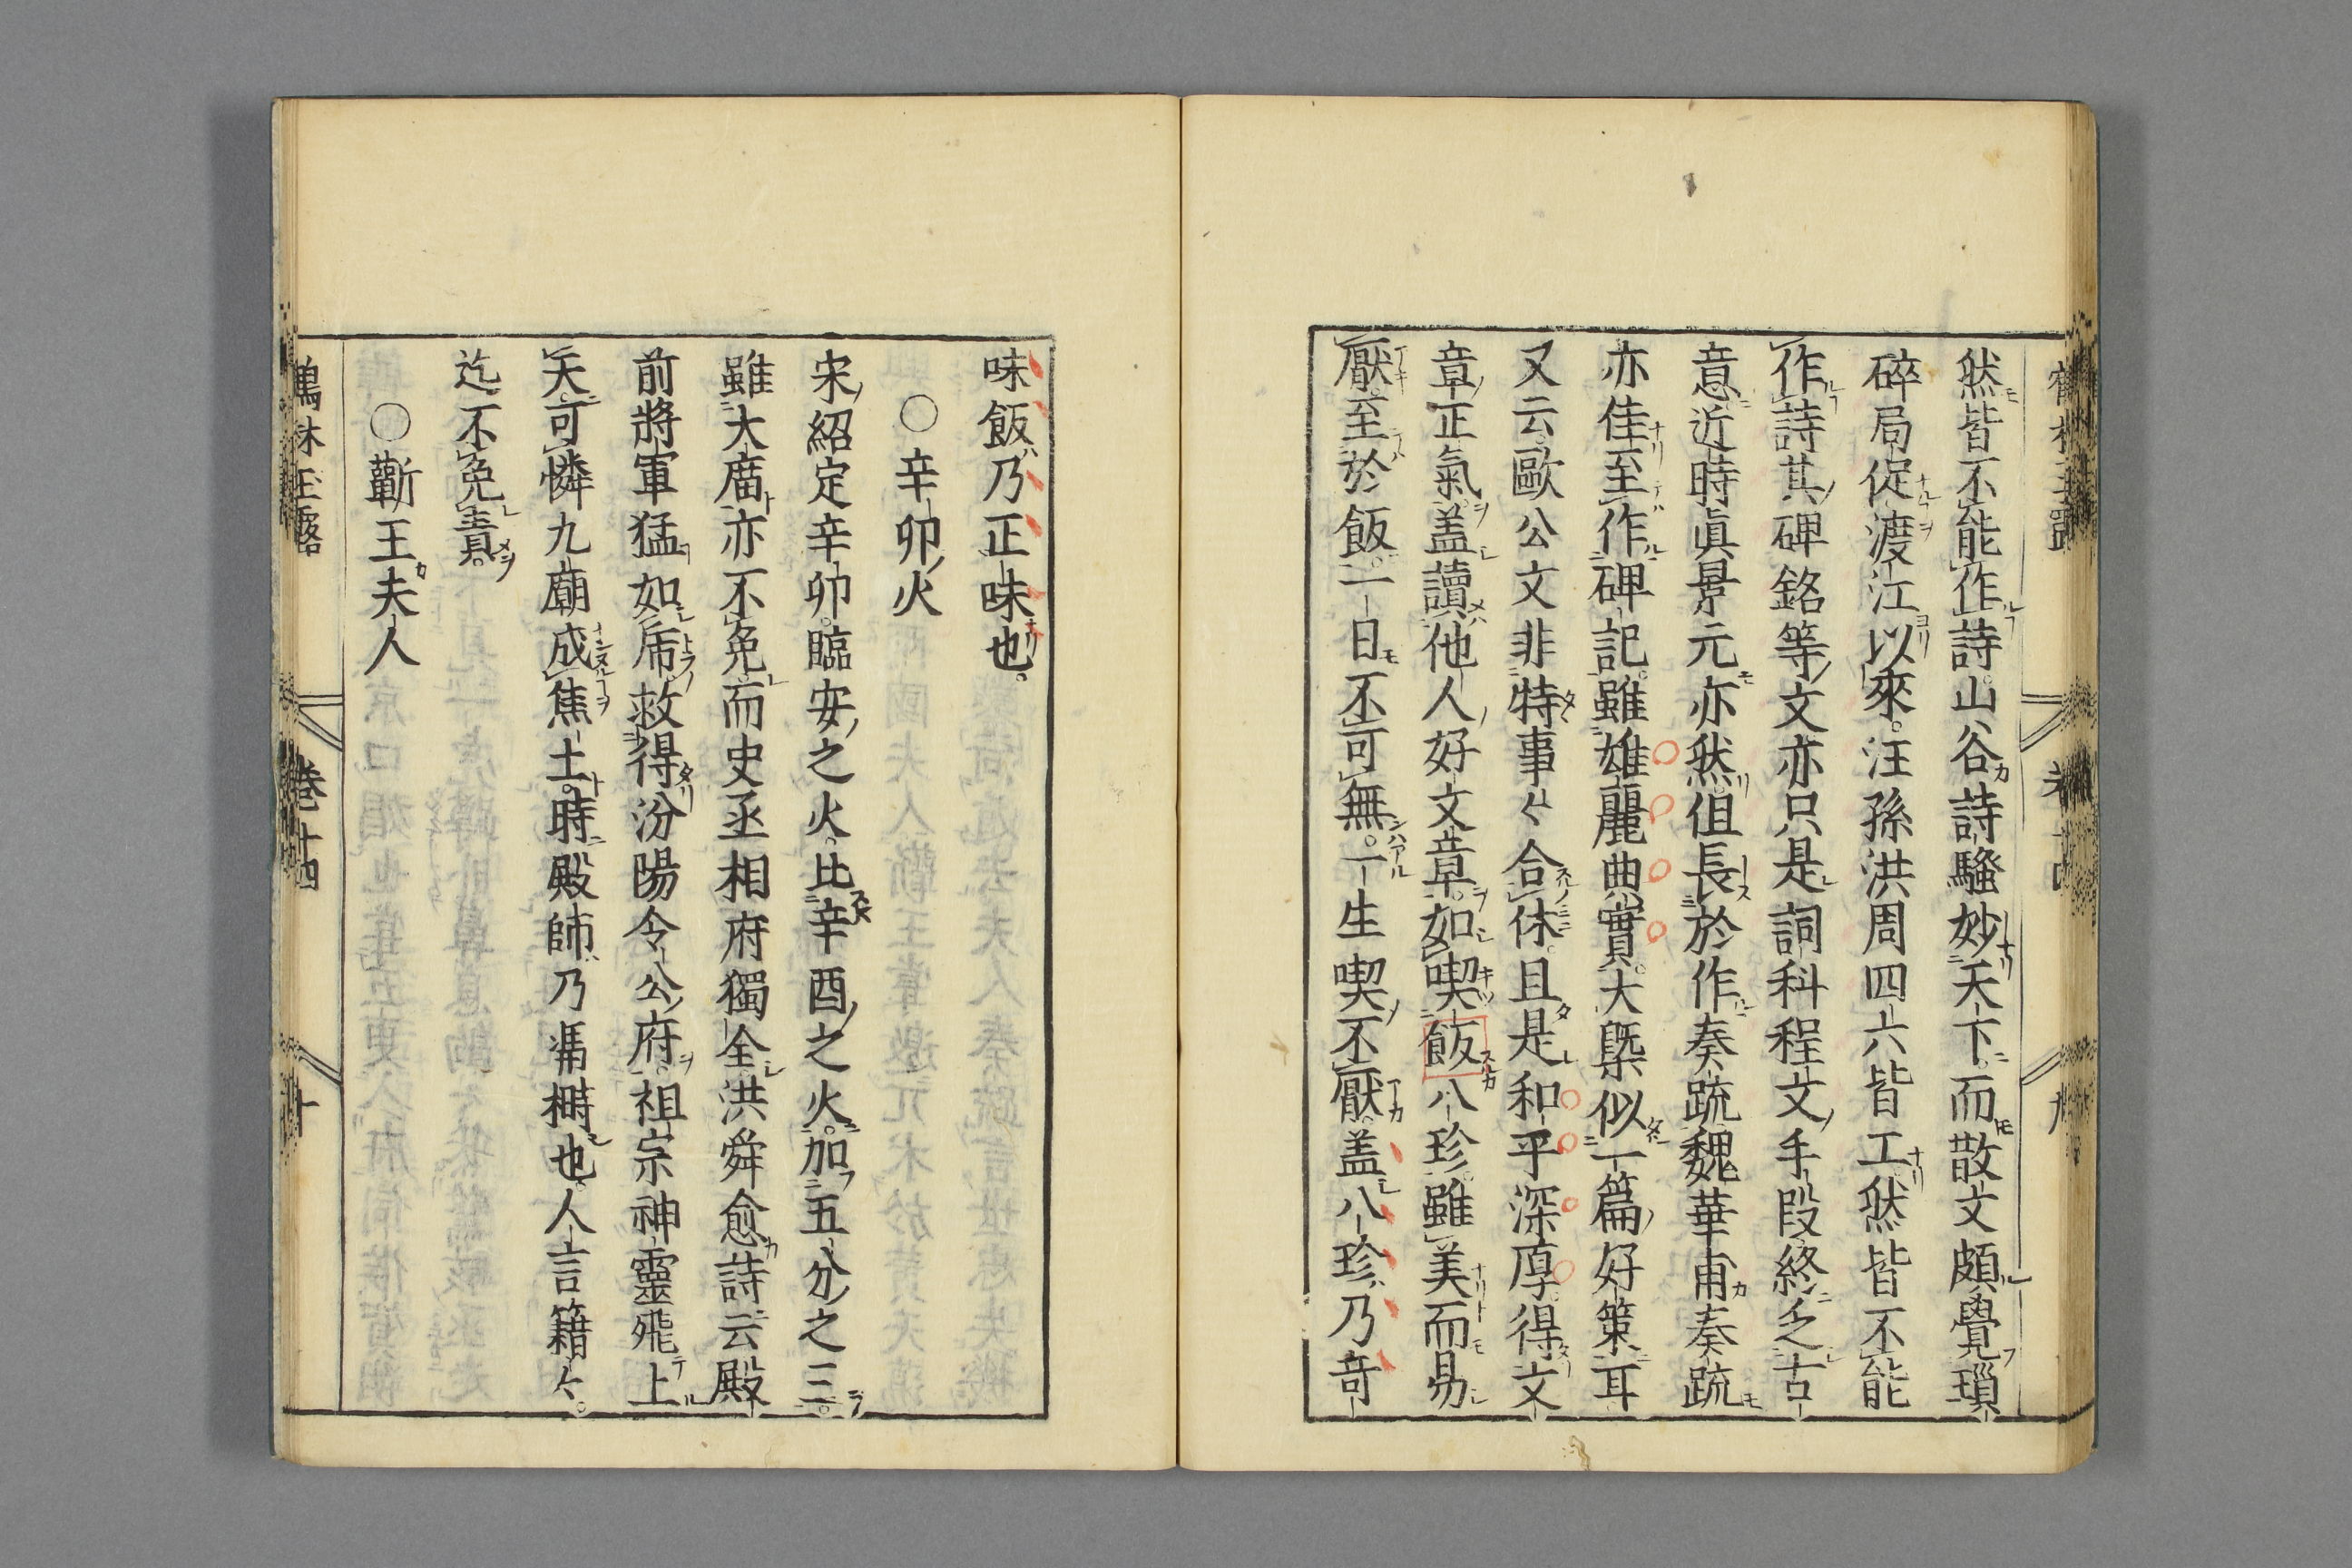 然皆不能作詩。山谷詩騷妙天下。而散文頗覺瑣
碎局促。渡江以來。汪孫洪周四六皆工。然皆不能
作詩其碑銘等文亦只是詞科程文手段終乏古
意近時眞景元亦然但長於作奏䟽魏華甫奏䟽
亦佳至作碑記。雖雄麗典實。大槩似一篇好策耳
又云。歐公文非特事々合体。且是和平深厚。得文
章正氣。盖讀他人好文章。如喫飯八珍。雖美而易
厭至於飯。一日不可無。一生喫不厭。盖八珍乃竒
味飯乃正味也。
○辛卯火
宋紹定辛卯。臨安之火。比辛酉之火。加五分之三。
雖大廟亦不免。而史丞相府獨全。洪舜兪詩云殿
前將軍猛如乕救得汾陽令公府。祖宗神靈飛上
天可憐九廟成焦土。時殿師乃馮榯也。人言籍々。
迄不免責。
○蘄王夫人
鶴林玉露 卷十四 十